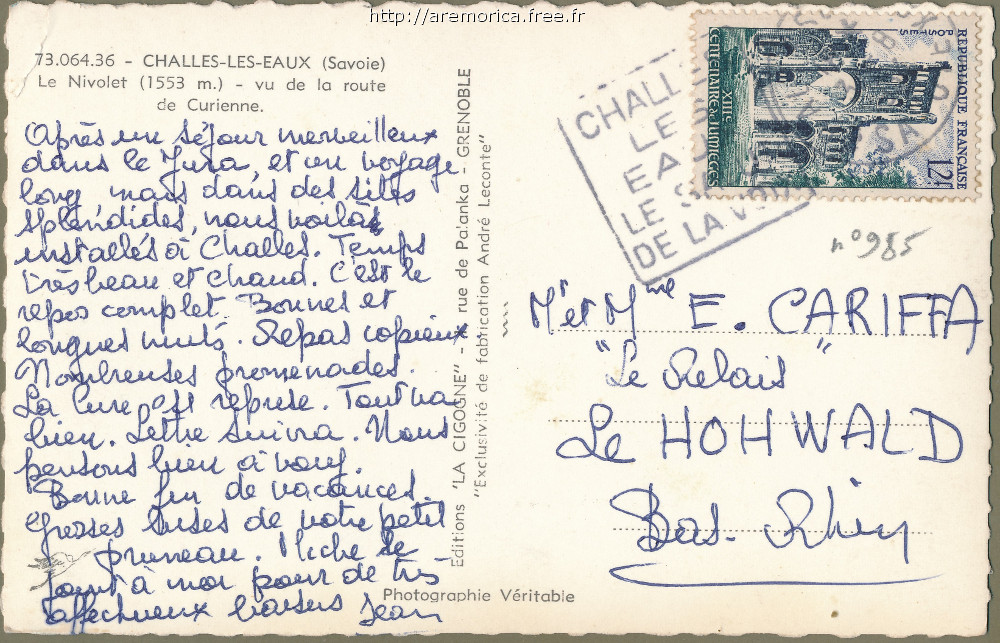 http://aremorica.free.fr
73.064.36 - CHALLES-LES-EAUX (Savoie)
Le Nivolet (1553 m.) - vu de la route
de Curienne.
Après un séjour merveilleux
dans le Jura, et un voyage
long mais dans des sites
splendides, nous voilà
installés à Challes. Temps
très beau et chaud. C'est le
repos complet. Bonnes et
longues nuits. Repas copieux
Nombreuses promenades.
La cure est reprise. Tout va
bien. Lettre suivra. Nous
pensons bien à vous.
Bonne fin de vacances.
Grosses bises de votre petit
pruneau. Miche se
joint à moi pour de très
affectueux baisers Jean
Editions "LA CIGOGNE" - rue de Palanka - GRENOBLE
"Exclusivité de fabrication André Leconte"
Photographie Véritable
CHALL
LE
EA
LE
DE LA
REPUBLIQUE FRANÇAISE
POSTES
12f
CENTENAIRE XIIIE JUMIEGES
n° 985
Mr et Mme E. CARIFFA
"Le Relais"
Le HOHWALD
Bas-Rhin